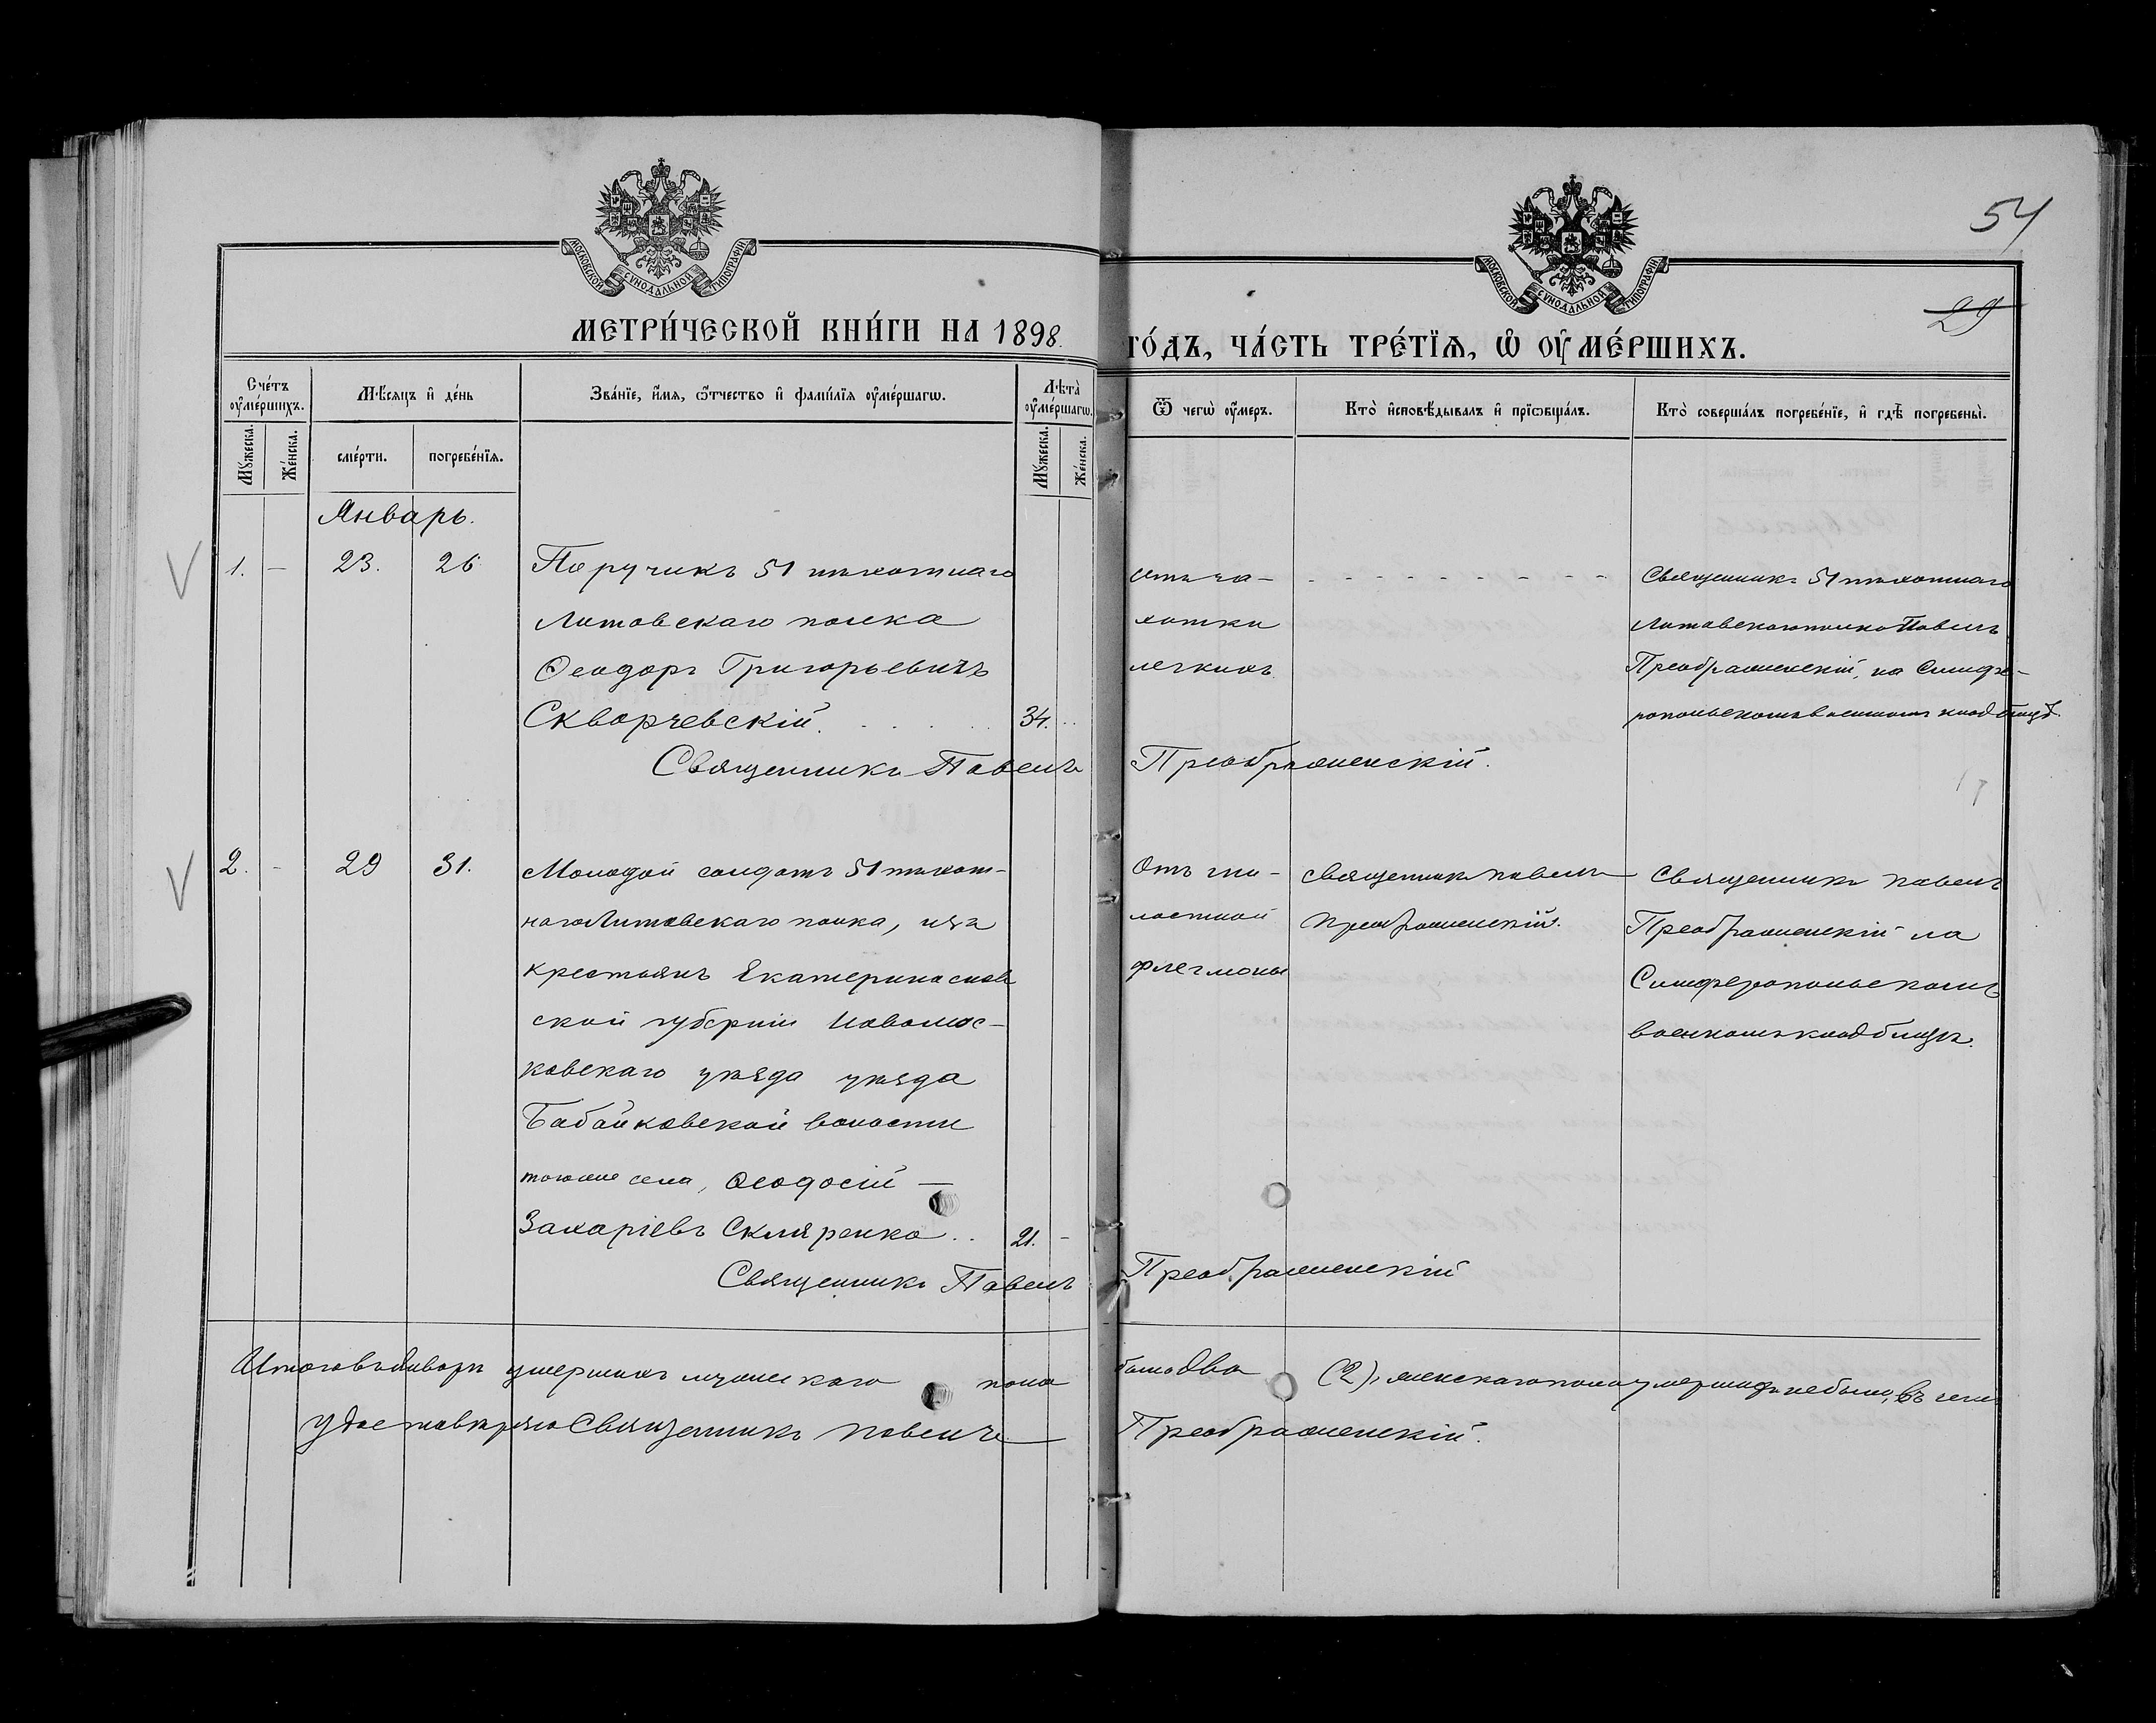 54
29
МОСКОВСКОЙ СѴНОДАЛЬНОЙ ТИПОГРАФІИ
МОСКОВСКОЙ СѴНОДАЛЬНОЙ ТИПОГРАФІИ
МЕТРИ́ЧЕСКОЙ КНИ́ГИ НА 1898.
ГО́ДЪ, ЧА́СТЬ ТРЕ́ТЇѦ, Ѡ҆ ОУ҆МЕ́РШИХЪ.
Сче́тъ оу҆ме́ршихъ.
Мꙋ́жеска.
Же́нска.
Мѣ́сяцъ и҆ де́нь
сме́рти.
погребе́нїѧ.
Зва́нїе, и҆́мѧ, ѻ҆́тчество и҆ фами́лїѧ оу҆ме́ршагѡ.
Лѣ́та оу҆ме́ршагѡ.
Мꙋ́жеска.
Же́нска.
Ѿ чегѡ̀ оу҆́меръ.
Кто̀ и҆сповѣ́дывалъ и҆ прїѡбща́лъ.
Кто̀ соверша́лъ погребе́нїе, и҆ гдѣ̀ погребены̀.
Январь.
1. - 23. 26
Поручикъ 51 пѣхотнаго
Литовскаго полка
Ѳеодоръ Григорьевичъ
Скворчевскій. 34.
отъ ча-
хотки
легкихъ
Священникъ 51 пѣхотнаго
Литовскаго полка Павелъ
Преображенскій, на Симфе-
ропольскомъ военномъ кладбищѣ.
Священникъ Павелъ Преображенскій.
2. - 29 31.
Молодой солдатъ 51 пѣхот-
наго Литовскаго полка, изъ
крестьянъ Екатеринослав
ской губерніи Новомос-
ковскаго уѣзда уѣзда
Бабайковской волости
тогоже села, Ѳеодосій -
Захаріевъ Скляренко .. 21. -
Отъ гни-
лостной
флегмоны
Священникъ Павелъ
Преображенскій.
Священникъ Павелъ
Преображенскій на
Симферопольскомъ
военномъ кладбищѣ.
Священникъ Павелъ Преображенскій
Итого въ Январѣ умершихъ мужескаго пола было два (2), женскаго пола умершихъ не было, въ чемъ
удостовѣряю Священникъ Павелъ Преображенскій.